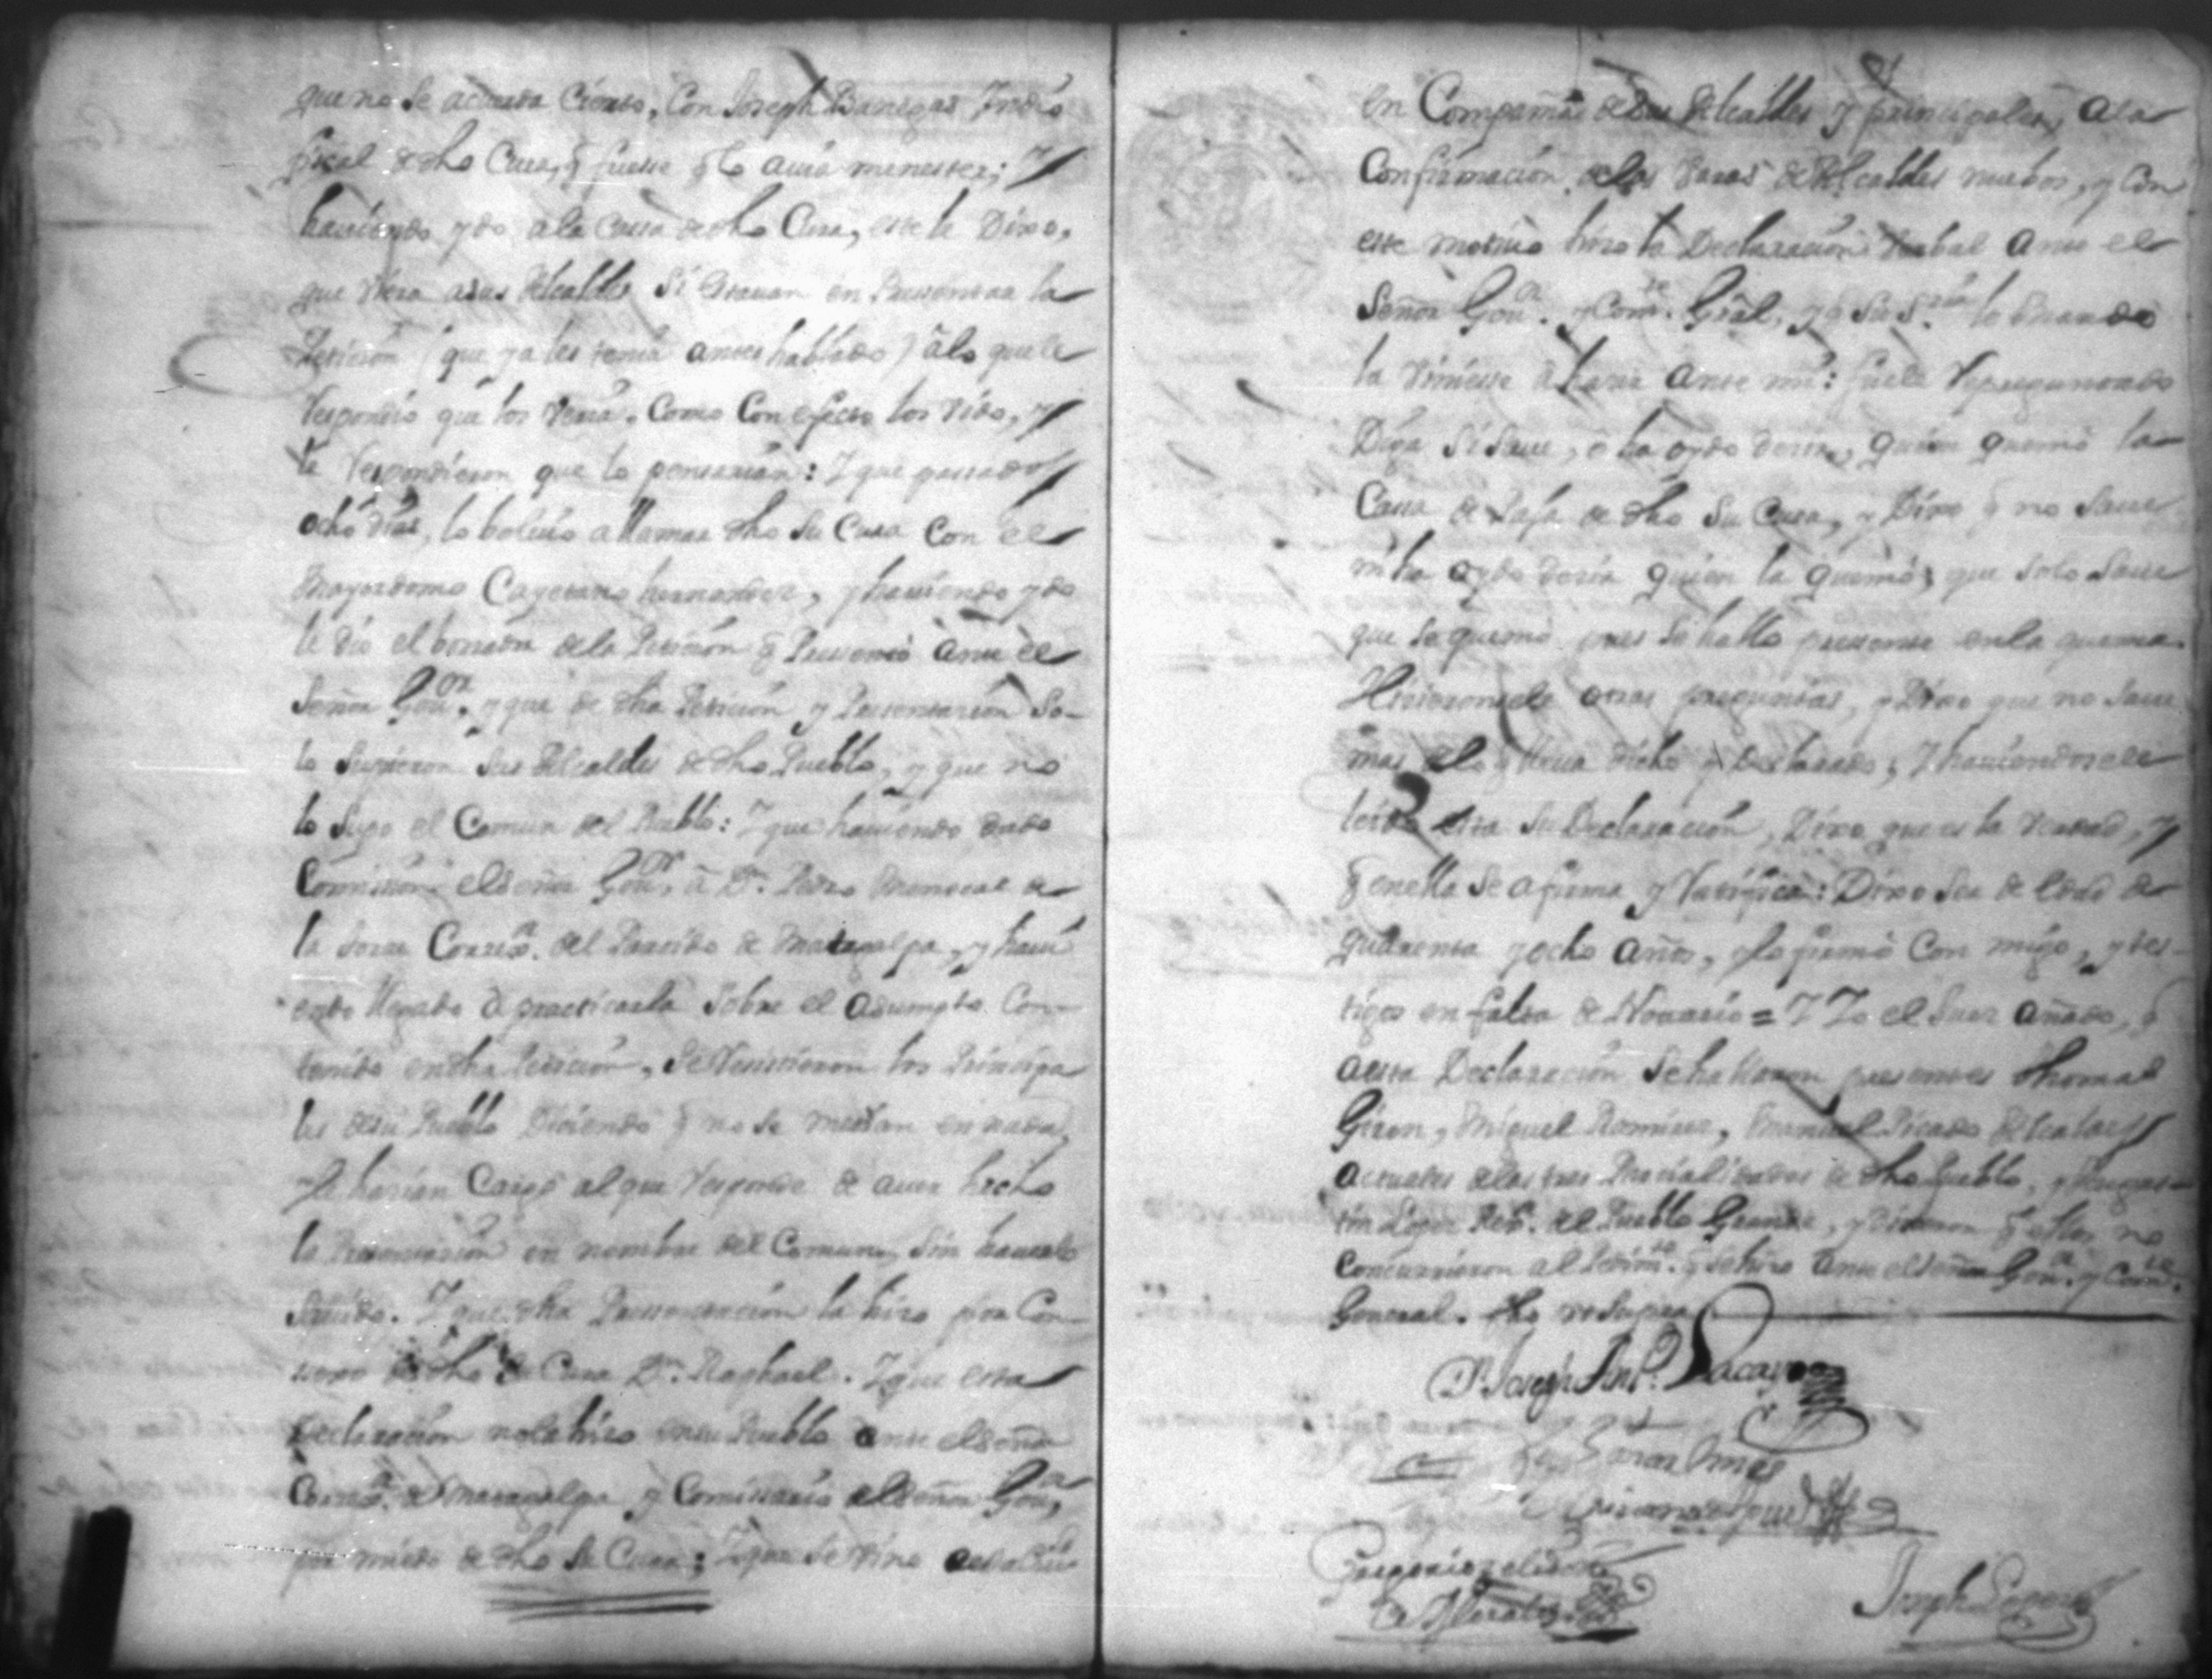 que no se acuerda cierto, con Joseph Banegas Indio
fiscal de dho Cura, q fuesse q lo avia menester; y
haviendo ydo a la Cassa de dho Cura, este le Dixo,
que viera a sus Alcaldes si estavan en Pressentar la
Peticion (que ya les tenia antes hablado) â lo que le
Respondió que los veria. Como con efecto los vido, y
le Respondieron que lo pensarian: Y que passados
ocho dias, lo bolvio a llamar dho su Cura con el
Mayordomo Cayetano hernandez, y haviendo ydo
le dio el borrador de la Peticion q Pressentó ante el
Señor Gou.or y que de dha Peticion y Presentacion so-
lo supieron sus Alcaldes de dho Pueblo, y que no
lo supo el Comun del Pueblo: Y que haviendo dado
Comission el Señor Gou.or â Dn. Pedro de
la Correx.or del Partido de Matagalpa, y havi
endo llegado â practicarla sobre el asumpto con-
tenido en dha Peticion, se los Principa
les de su Pueblo Diciendo q no se metian en nada,
le harian Cargo al que Responde de aver hecho
la Pressentacion en nombre del Comun, sin haverlo
savido. Y que dha Pressentacion la hizo por Con-
sexo de dho su Cura Dn. Raphael. Y que esta
Declaracion no la hizo en su Pueblo ante el Señor
Correx.or de Matagalpa y Comissario del Señor Gou.or
por miedo de dho su Cura; Y que se vino
en Compañia de sus Alcaldes y principales, a la
Confirmacion de las Varas de Alcaldes nuebos, y con
este motivo hizo la Declaracion Verbal ante el
Señor Gou.or y Com.te Gral, y q su S.ria lo mandó
la viniesse â haser ante mi: fuele Repreguntado
Diga si save, o ha oydo desir, quien quemó la
Cassa de Paja de dho su Cura, y Dixo q no save
ni ha oydo desir quien la quemó; que solo save
que se quemo pues se halló pressente en la quema.
Hicieronsele otras preguntas, y Dixo que no save
mas de lo q lleva dicho y Declarado; Y haviendosele
leido esta su Declaracion, Dixo que es la verdad, y
q en ella se afirma y Ratifica: Dixo ser de edad de
quarenta y ocho años, y lo firmó con migo, y tes-
tigos en falta de Notario = Y Yo el Juez añado, q
a esta Declaracion se hallaron presentes Thomas
Giron, Miguel Ramirez, Manuel Picado Alcaldes
actuales de las tres Parcialidades de dho Pueblo, y Augus-
tin Lopez del Pueblo Grande, y Dixeron q ellos no
concurrieron al q se hizo ante el Señor Gou.or y Com.te
General. no
Dn Joseph Ant.o Lacayo
Joseph